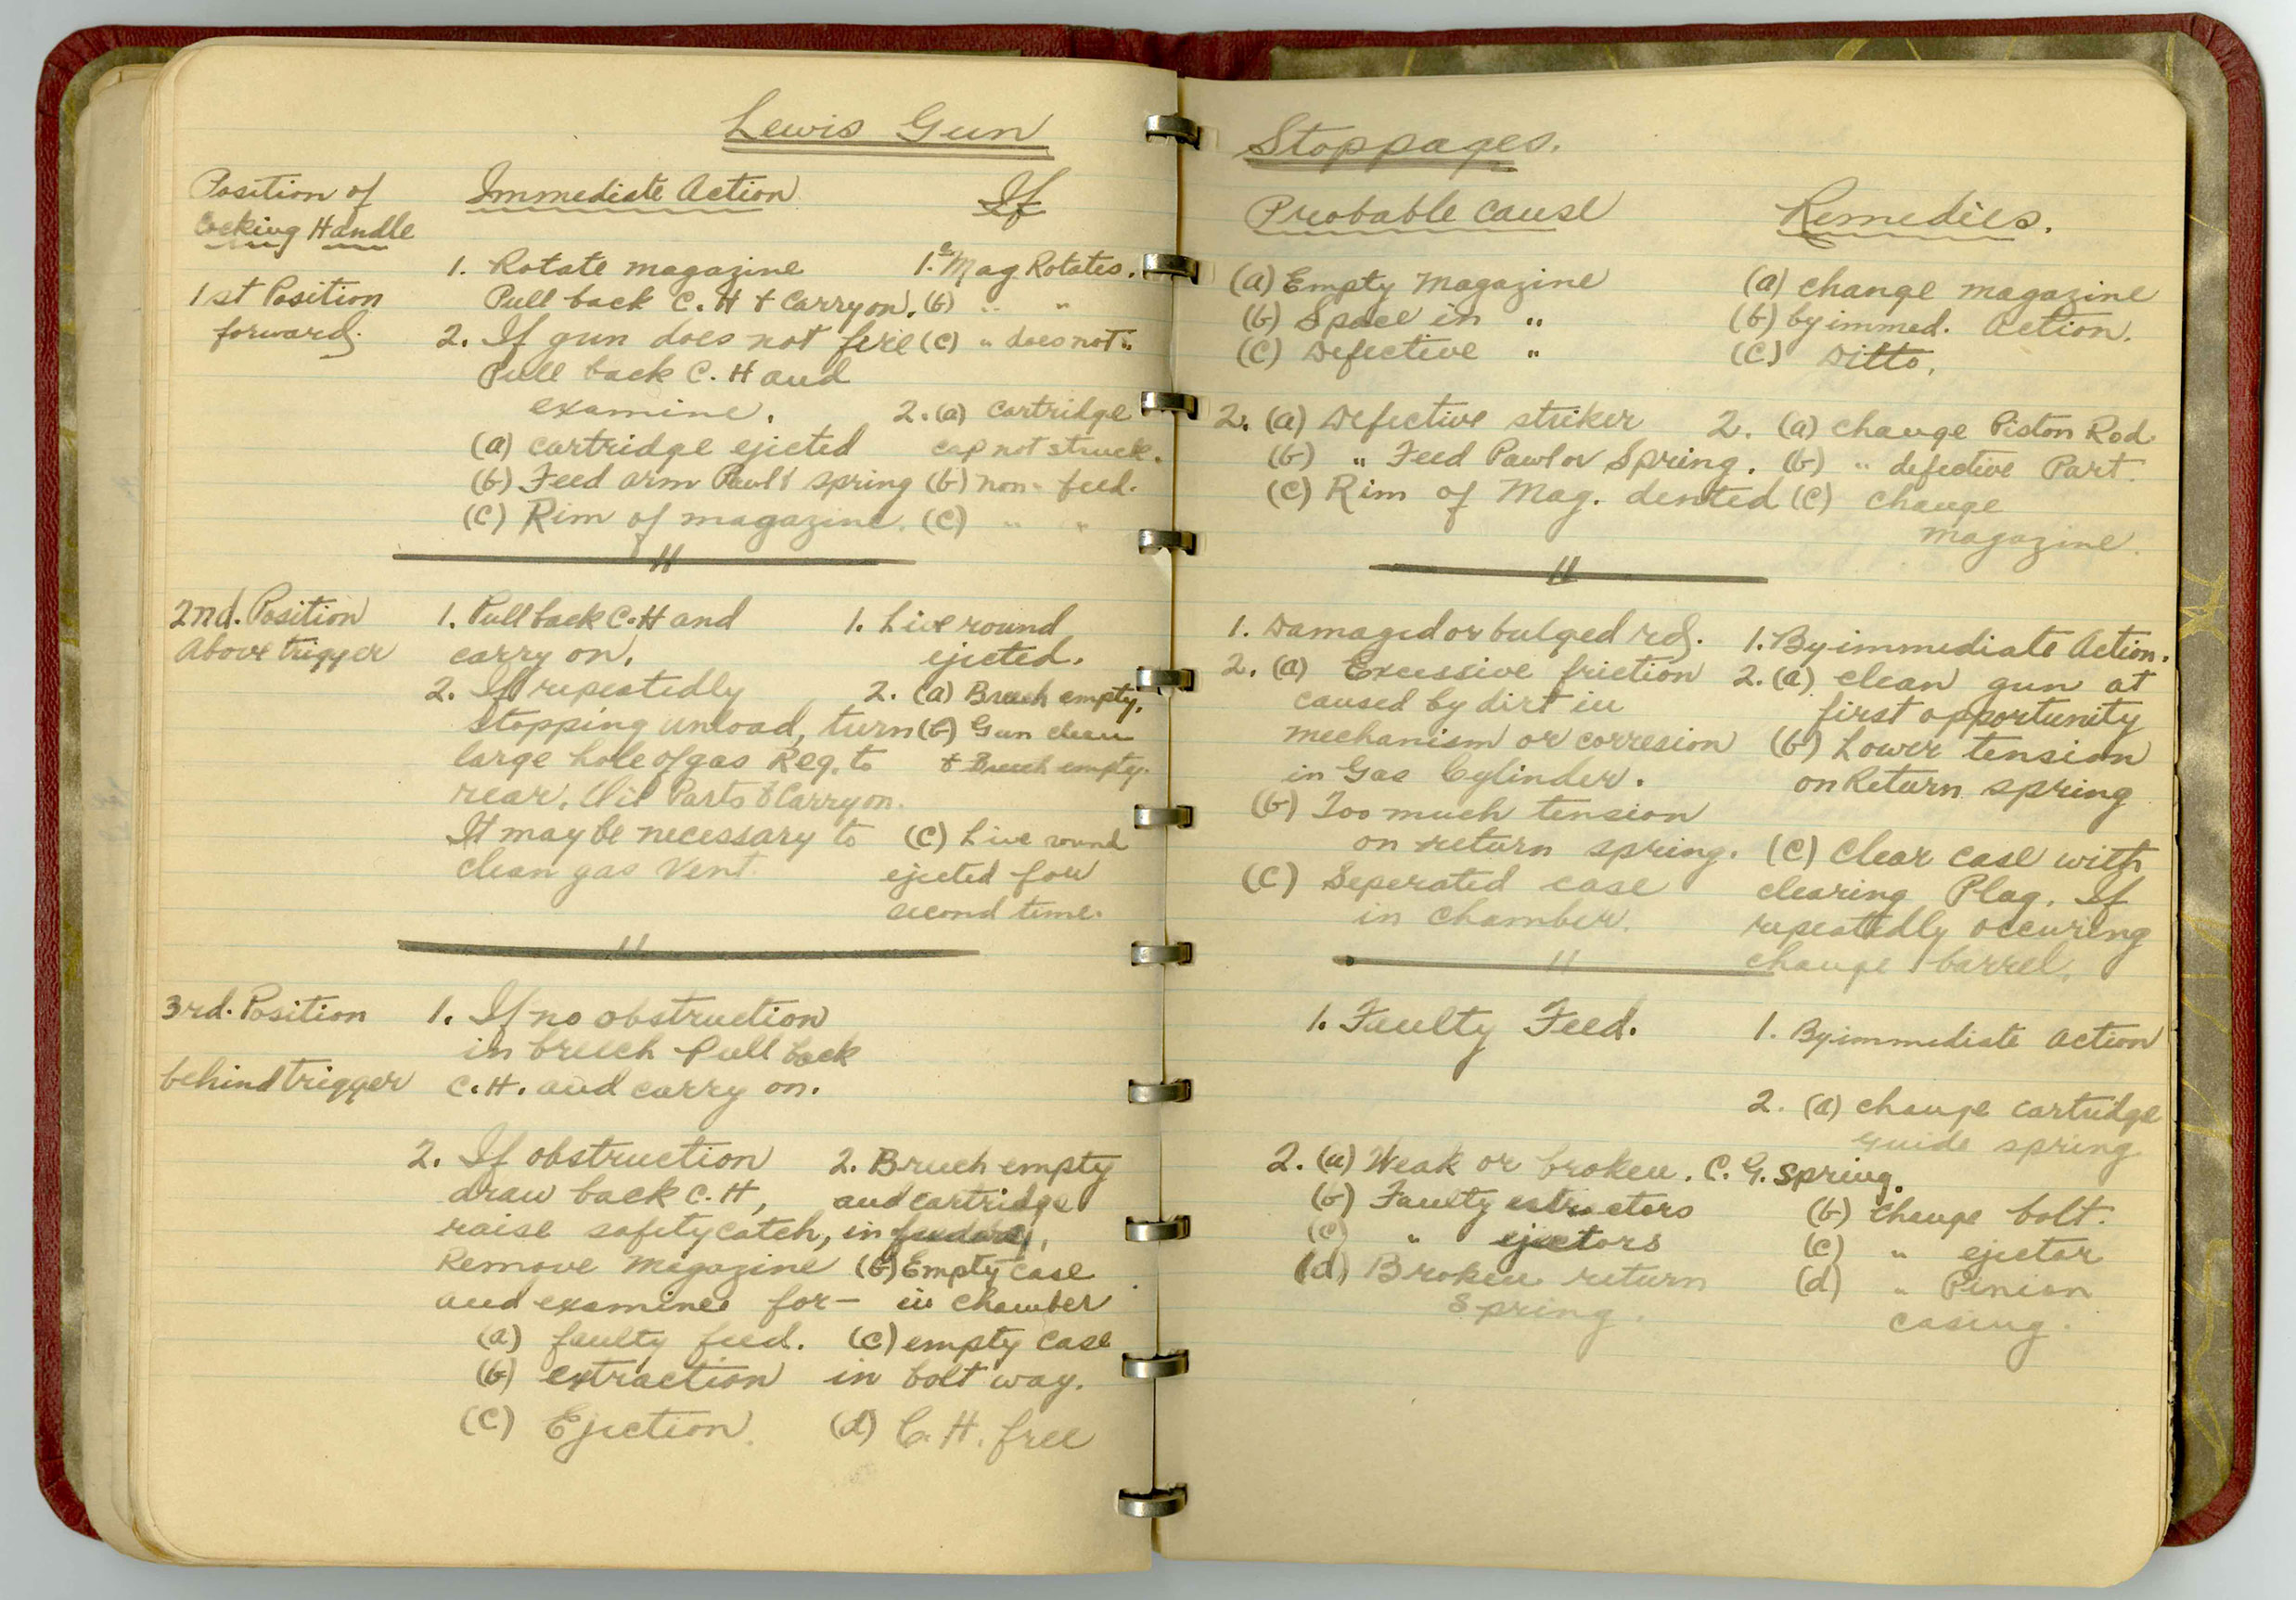 Lewis Gun
Position of
Cocking Handle
Immediate Action
If
1st Position
forward.
1. Rotate magazine
Pull back C. H & Carry on.
2. If gun does not fire
Pull back C. H and
examine.
(a) cartridge ejected
(b) Feed arm Pawl & spring
(c) Rim of magazine.
1. a Mag Rotates.
(b) " "
(c) " does not ".
2. (a) cartridge
cap not struck.
(b) non- feed.
(c) " "
"
2nd. Position
Above trigger
1. Pull back C. H and
carry on.
2. If repeatedly
stopping unload, turn
large hole of gas Reg. to
rear. Oil Parts & Carry on.
It may be necessary to
clean gas vent.
1. Live round
ejected.
2. (a) Breech empty.
(b) Gun clean
& Breech empty.
(c) Live round
ejected for
second time.
"
3rd. Position
behind trigger
1. If no obstruction
in breech Pull back
C. H. and carry on.
2. If obstruction
draw back C. H,
raise safety catch,
Remove Magazine
and examine for—
(a) faulty feed.
(b) extraction
(c) Ejection.
2. Breech empty
and cartridge
in
(b) Empty case
in chamber
(c) empty case
in bolt way.
(d) C. H. free
Stoppages.
Probable Cause
Remedies.
(a) Empty Magazine
(b) Space in "
(c) Defective "
(a) change magazine
(b) by immed. Action.
(c) Ditto.
2. (a) Defective striker
(b) " Feed Pawl or Spring.
(c) Rim of Mag. dented
2. (a) change Piston Rod.
(b) " defective Part.
(c) change
magazine.
"
1. Damaged or bulged rd.
2. (a) Excessive friction
caused by dirt in
mechanism or corresion
in Gas Cylinder.
(b) Too much tension
on return spring.
(c) Seperated case
in chamber.
1. By immediate Action.
2. (a) clean gun at
first opportunity
(b) Lower tension
on Return spring
(c) clear case with
clearing Plag. If
repeatedly occuring
change barrel.
"
1. Faulty Feed.
2. (a) Weak or broken. C. G. Spring.
(b) Faulty extractors
(c) " ejectors
(d) Broken return
Spring.
1. By immediate Action
2. (a) change cartridge
guide spring
(b) change bolt.
(c) " ejector
(d) " Pinion
casing.